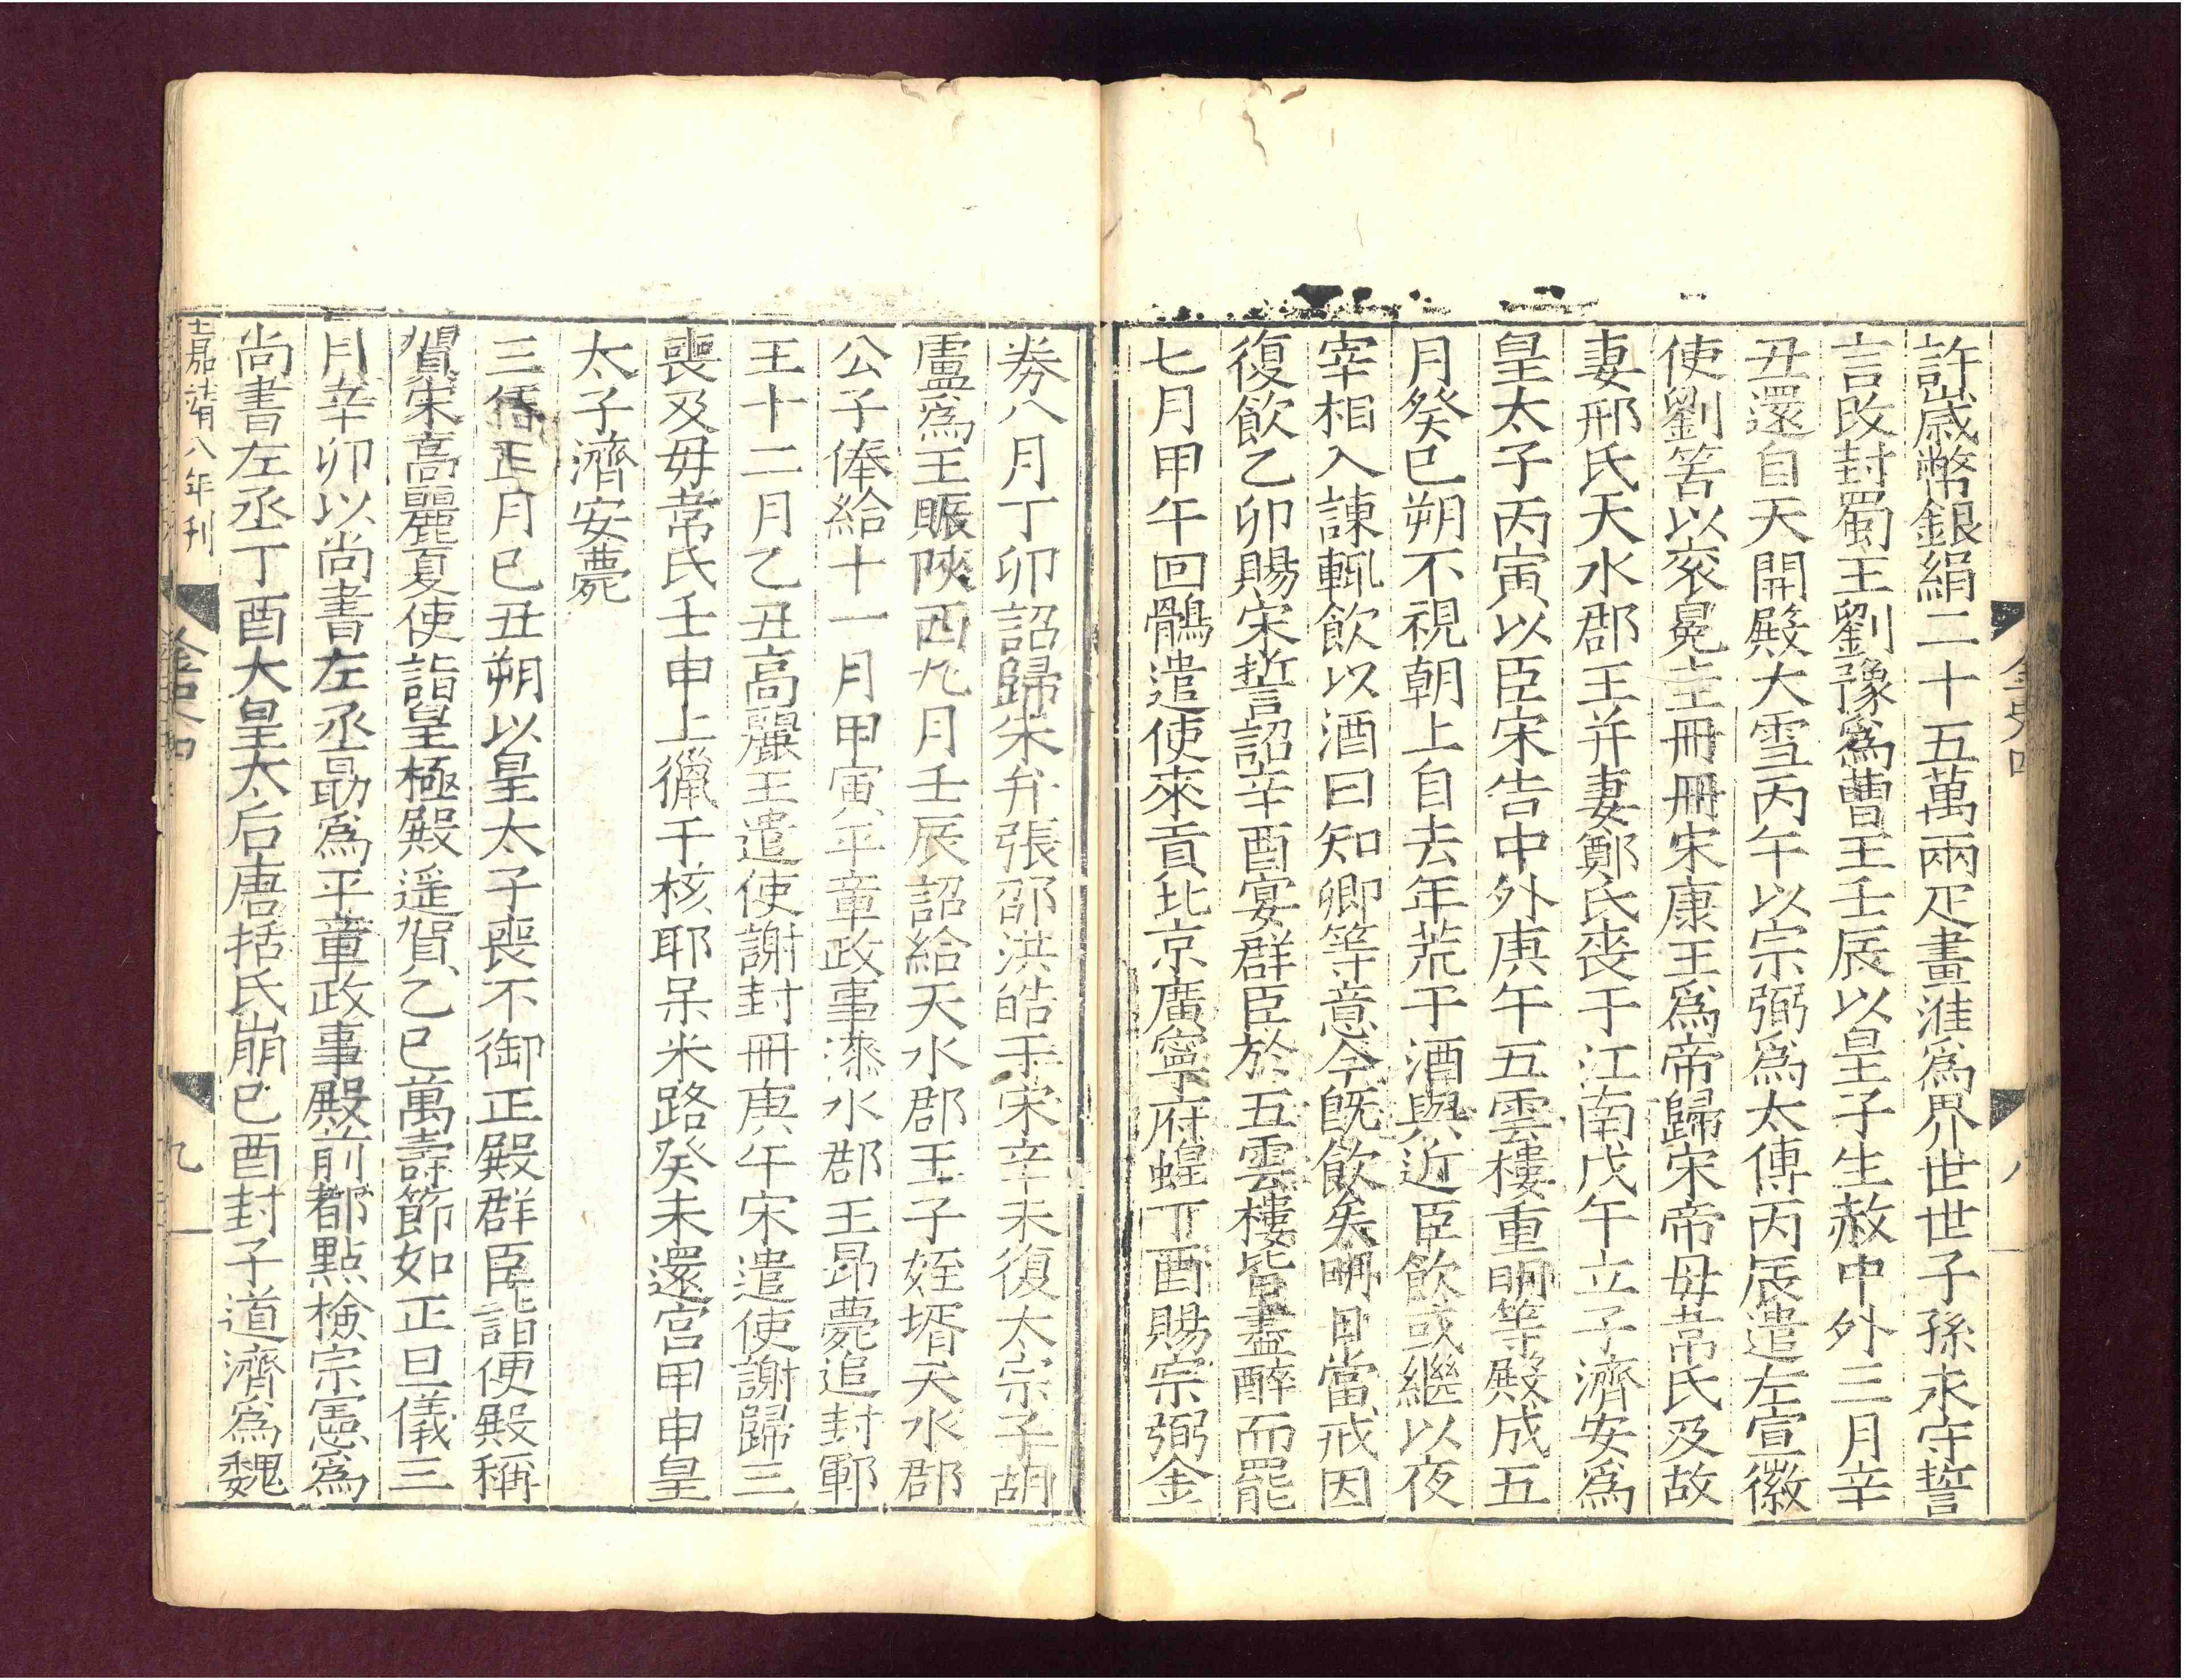 許歲幣銀絹二十五萬兩疋畫淮爲界世世子孫永守誓
言改封蜀王劉豫爲曹王壬辰以皇子生赦中外三月辛
丑還自天開殿大雪丙午以宗弼爲太傅丙辰遣左宣徽
使劉筈以衮冕圭冊冊宋康王爲帝歸宋帝母韋氏及故
妻邢氏天水郡王并妻鄭氏喪于江南戊午立子濟安爲
皇太子丙寅以臣宋告中外庚午五雲樓重明等殿成五
月癸巳朔不視朝上自去年荒于酒與近臣飲或繼以夜
宰相入諫輒飲以酒曰知卿等意今旣飲矣明日當戒因
復飲乙卯賜宋誓詔辛酉宴群臣於五雲樓皆盡醉而罷
七月甲午回鶻遣使來貢北京廣寧府蝗丁酉賜宗弼金
金史四
八
券八月丁卯詔歸朱弁張邵洪皓于宋辛未復太宗子胡
盧爲王賑陝西九月壬辰詔給天水郡王子姪壻天水郡
公子俸給十一月甲寅平章政事漆水郡王昂薨追封鄆
王十二月乙丑高麗王遣使謝封冊庚午宋遣使謝歸三
喪及母韋氏壬申上獵于核耶呆米路癸未還宮甲申皇
太子濟安薨
三年正月己丑朔以皇太子喪不御正殿群臣詣便殿稱
賀宋高麗夏使詣皇極殿遥賀乙巳萬壽節如正旦儀三
月辛卯以尚書左丞勗爲平章政事殿前都點檢宗憲爲
尚書左丞丁酉大皇太后唐括氏崩己酉封子道濟爲魏
嘉靖八年刊
金史四
九